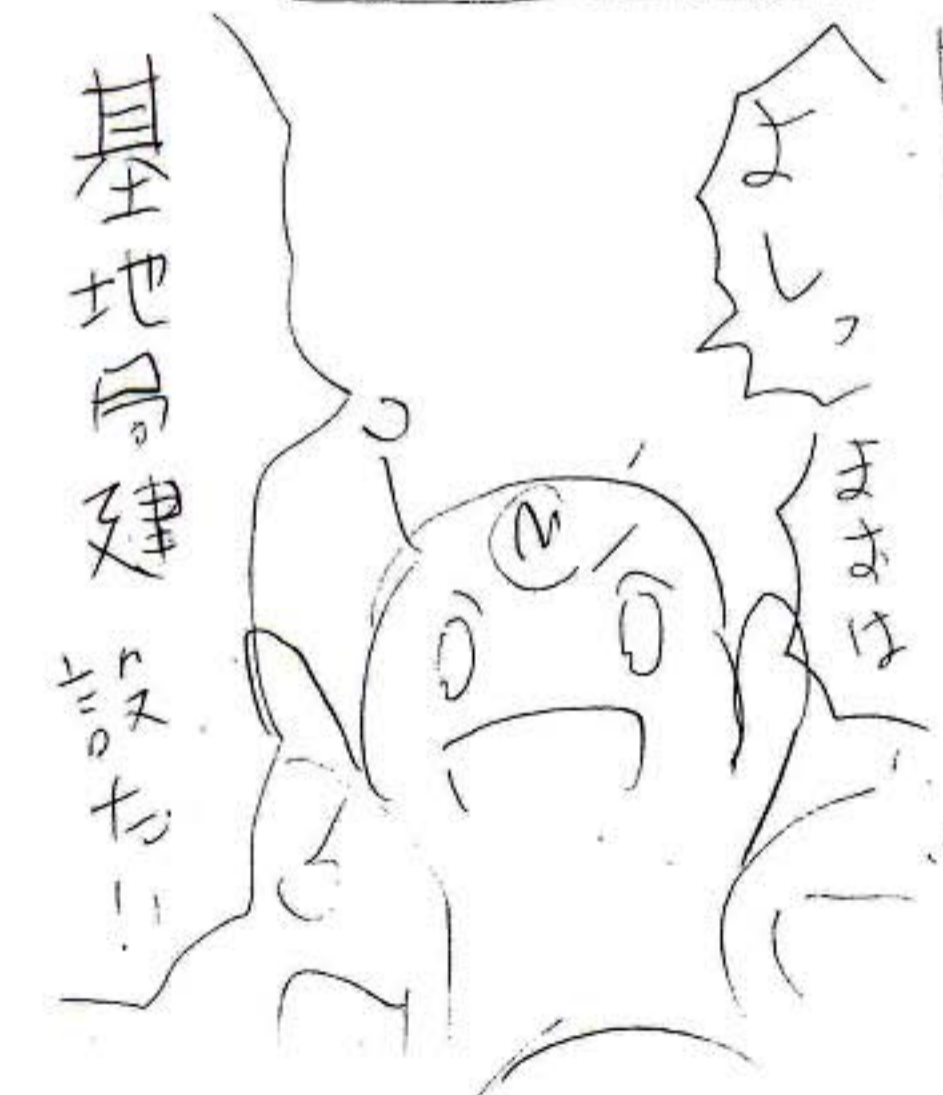 よしっ
まずは
基地局建設だ!!
N